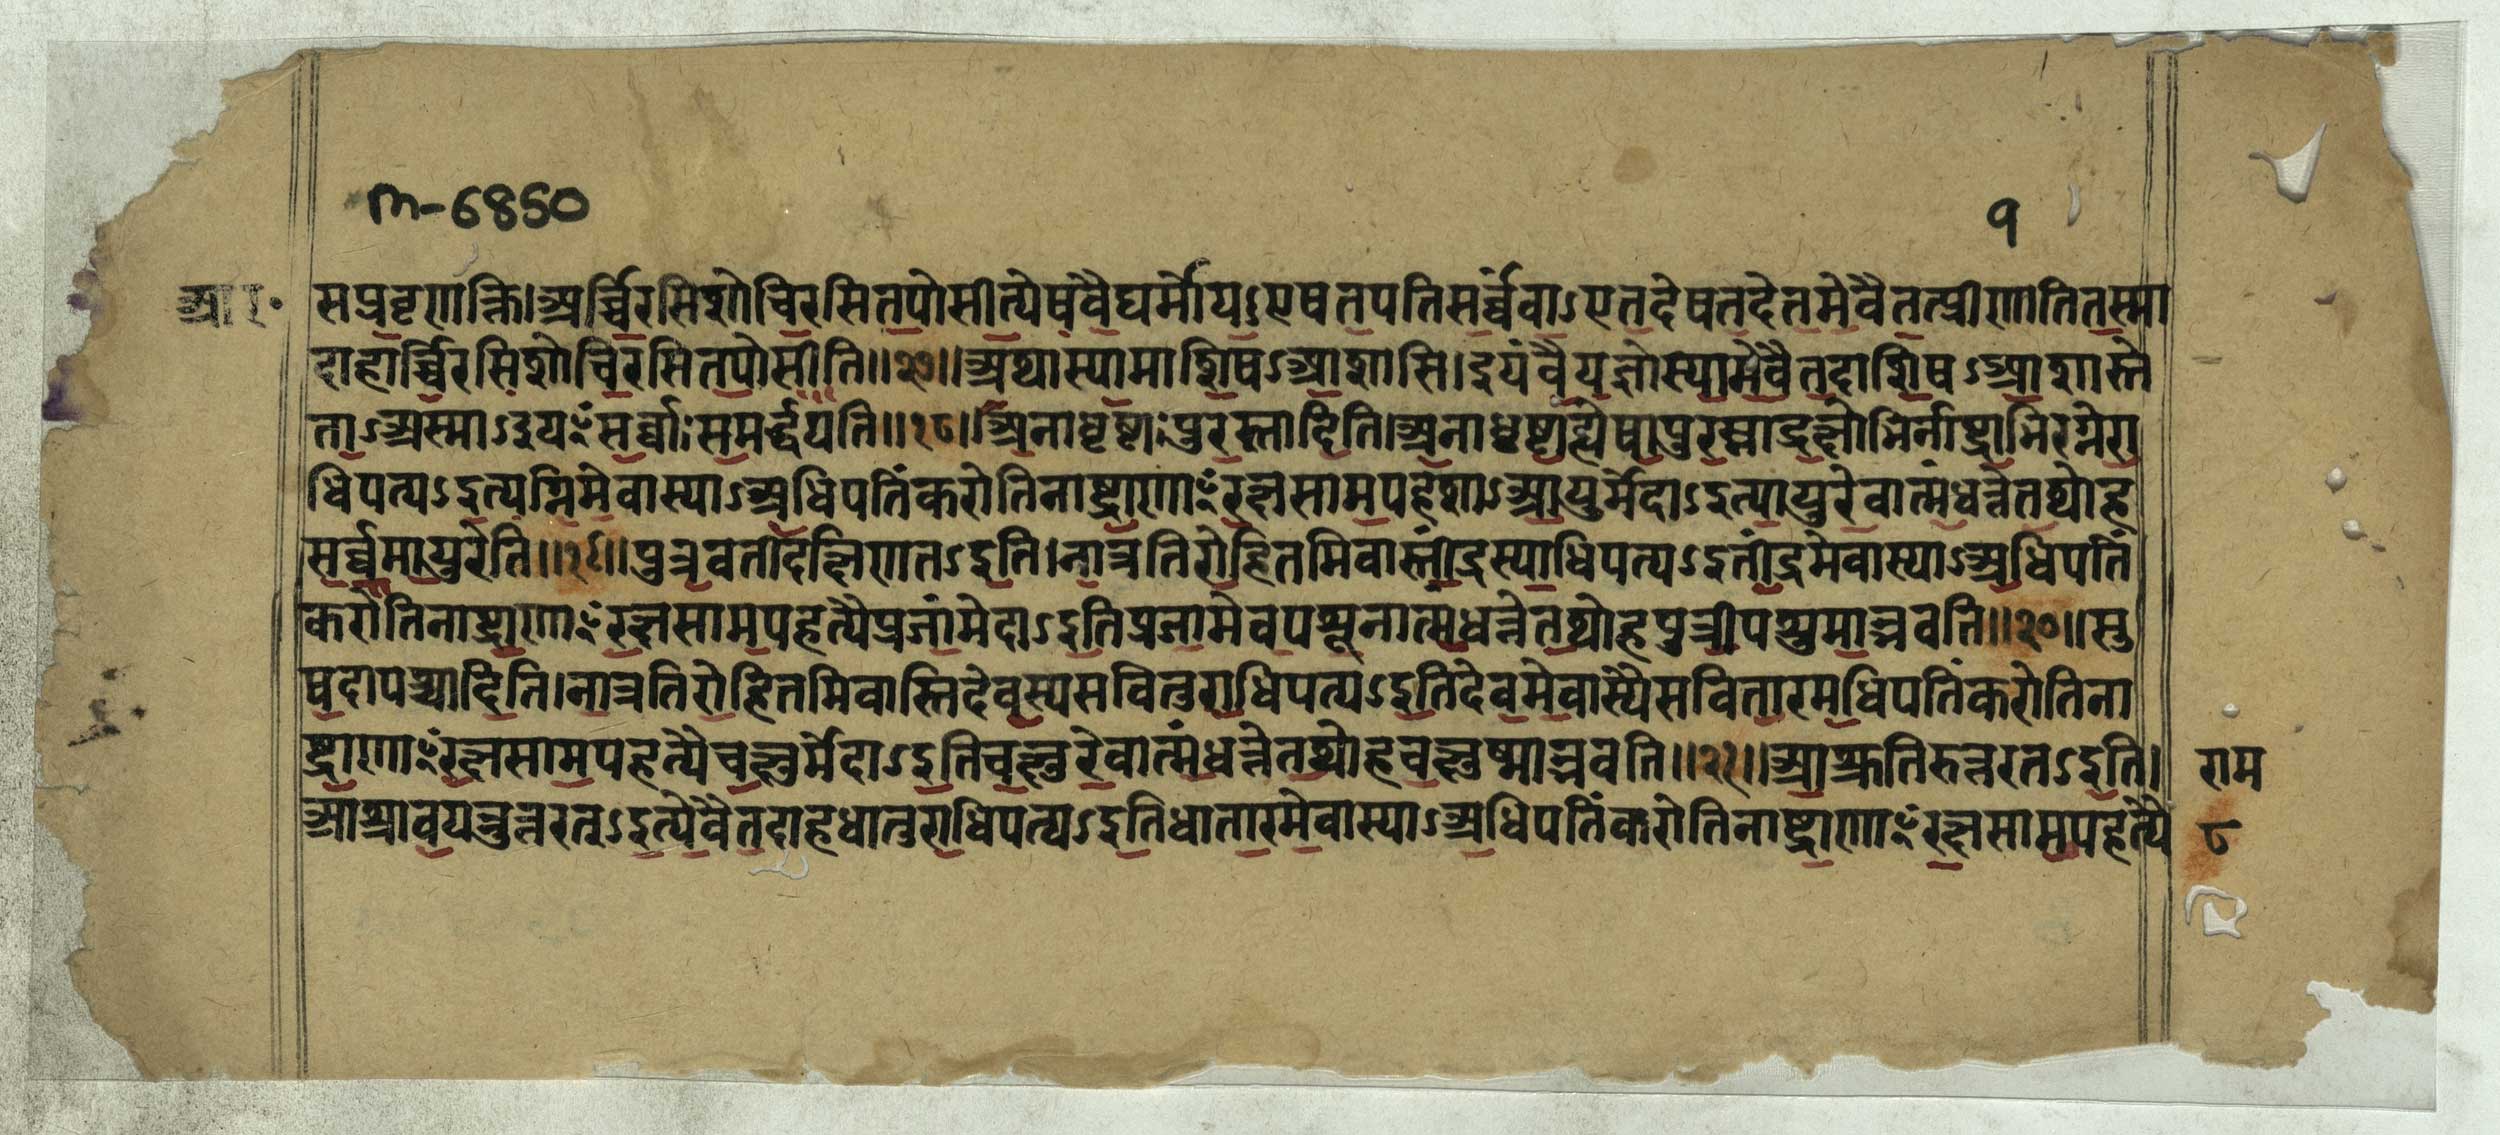 m-6850
१
आ॰
सप्रवृणक्ति।अर्च्चिरसिशोचिरसितपोसीत्येषवैघर्मोयऽएषतपतिसर्व्वंवाऽएतदेषतदेतमेवैतत्प्रीणातितस्मा
दाहार्च्चिरसिशोचिरसितपोसीति॥१७॥अथास्यामाशिषऽआशासि।इयंवैयज्ञोस्यामेवैतदाशिषऽआशास्ते
ताऽअस्माऽइयꣳसर्व्वाःसमर्द्धयति॥१८॥अनाधृष्टापुरस्तादिति।अनाधृष्टाह्येषापुरस्ताद्रक्षोभिर्नाष्ट्राभिरग्नेरा
धिपत्यऽइत्यग्निमेवास्याऽअधिपतिंकरोतिनाष्ट्राणाꣳरक्षसामपहत्याऽआयुर्मेदाऽइत्यायुरेवात्मंधत्तेतथोह
सर्व्वमायुरेति॥१९॥पुत्रवतीदक्षिणतऽइति।नात्रतिरोहितमिवास्तींद्रस्याधिपत्यऽइतींद्रमेवास्याऽअधिपतिं
करोतिनाष्ट्राणाꣳरक्षसामपहत्यैप्रजांमेदाऽइतिप्रजामेवपशूनात्मंधत्तेतथोहपुत्रीपशुमान्भवति॥२०॥सु
षदापश्चादिति।नात्रतिरोहितमिवास्तिदेवस्यसवितुराधिपत्यऽइतिदेवमेवास्यैसवितारमधिपतिंकरोतिना
ष्ट्राणाꣳरक्षसामपहत्यैचक्षुर्मेदाऽइतिचक्षुरेवात्मंधत्तेतथोहचक्षुष्मान्भवति॥२१॥आश्रुतिरुत्तरतऽइति।
राम
आश्रावयन्नुत्तरतऽइत्येवैतदाहधातुराधिपत्यऽइतिधातारमेवास्याऽअधिपतिंकरोतिनाष्ट्राणाꣳरक्षसामपहत्यै
८